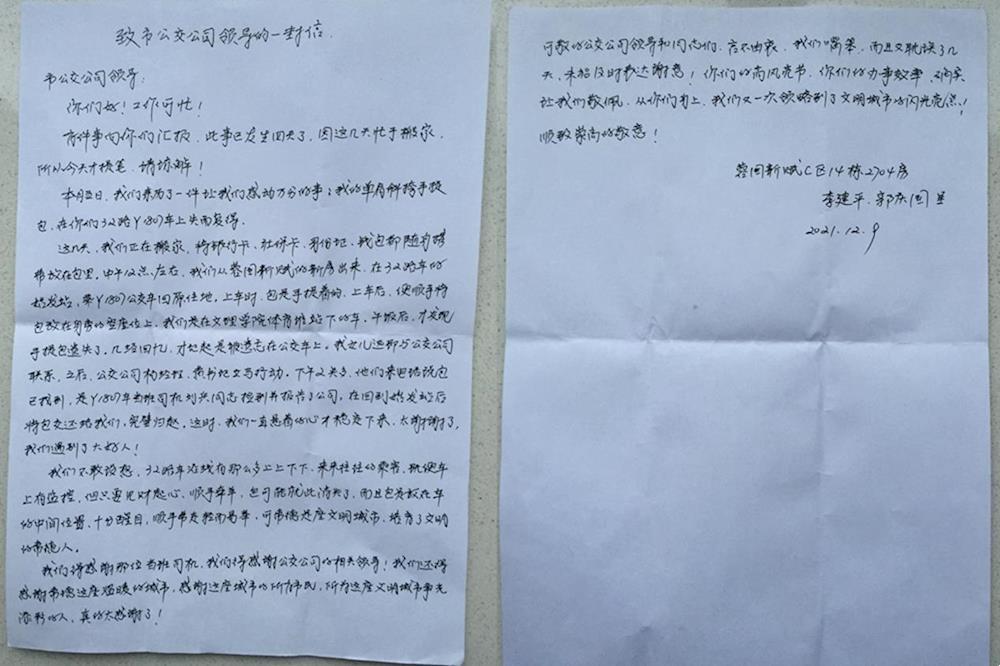 致市公交公司领导的一封信.
市公交公司领导:
你们好!工作可忙!
有件事向你们汇报,此事已发生四天了,因这几天忙于搬家,
所以今天才提笔,请谅解!
本月5日,我们亲历了一件让我们感动万分的事:我的单肩斜挎手提
包,在你们32路Y1807车上失而复得。
这几天,我们正在搬家,将银行卡、社保卡、身份证、钱包都随身携
带放在包里。中午12点左右,我们从蓉国新赋的新房出来,在32路车的
始发站,乘Y1807公交车回原住地。上车时,包是手提着的,上车后,便顺手将
包放在身旁的空座位上。我们是在文理学院体育馆站下的车。午饭后,才发现
手提包遗失了。几经回忆,才想起是被遗忘在公交车上。我女儿迅即与公交公司
联系,之后,公交公司的经理、书记立马行动。下午2点多,他们来电话说包
已找到,是Y1807车当班司机刘兴同志捡到并报告了公司,在回到始发站后
将包交还给我们,完璧归赵。这时,我们一直悬着的心才稳定下来,太谢谢了,
我们遇到了大好人!
我们不敢设想,32路车沿线有那么多上上下下、来来往往的乘客,既便车
上有监控,但只要见财起心、顺手牵羊,包可能就此消失了,而且包是放在车
的中间位置、十分醒目,顺手带走轻而易举,可常德是座文明城市,培育了文明
的常德人。
我们得感谢那位当班司机,我们得感谢公交公司的相关领导!我们还得
感谢常德这座温暖的城市,感谢这座城市的所有市民,所有为这座文明城市争光
添彩的人,真的太感谢了!
可敬的公交公司领导和同志们,言不由衷,我们嘴笨,而且又耽误了几
天,未能及时表达谢意!你们的高风亮节,你们的办事效率,确实
让我们敬佩,从你们身上,我们又一次领略到了文明城市的闪光亮点!
顺致崇高的敬意!
蓉国新赋C区14栋2704房
李建平、郭庆国 呈
2021.12.9